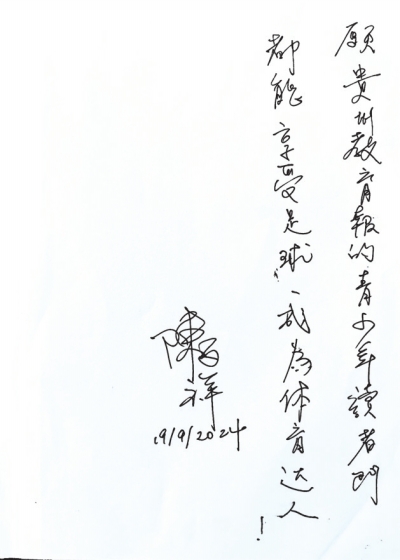 願貴州教育報的青少年讀者們
都能享受足球、成為体育达人！
陳百祥
19/9/2024